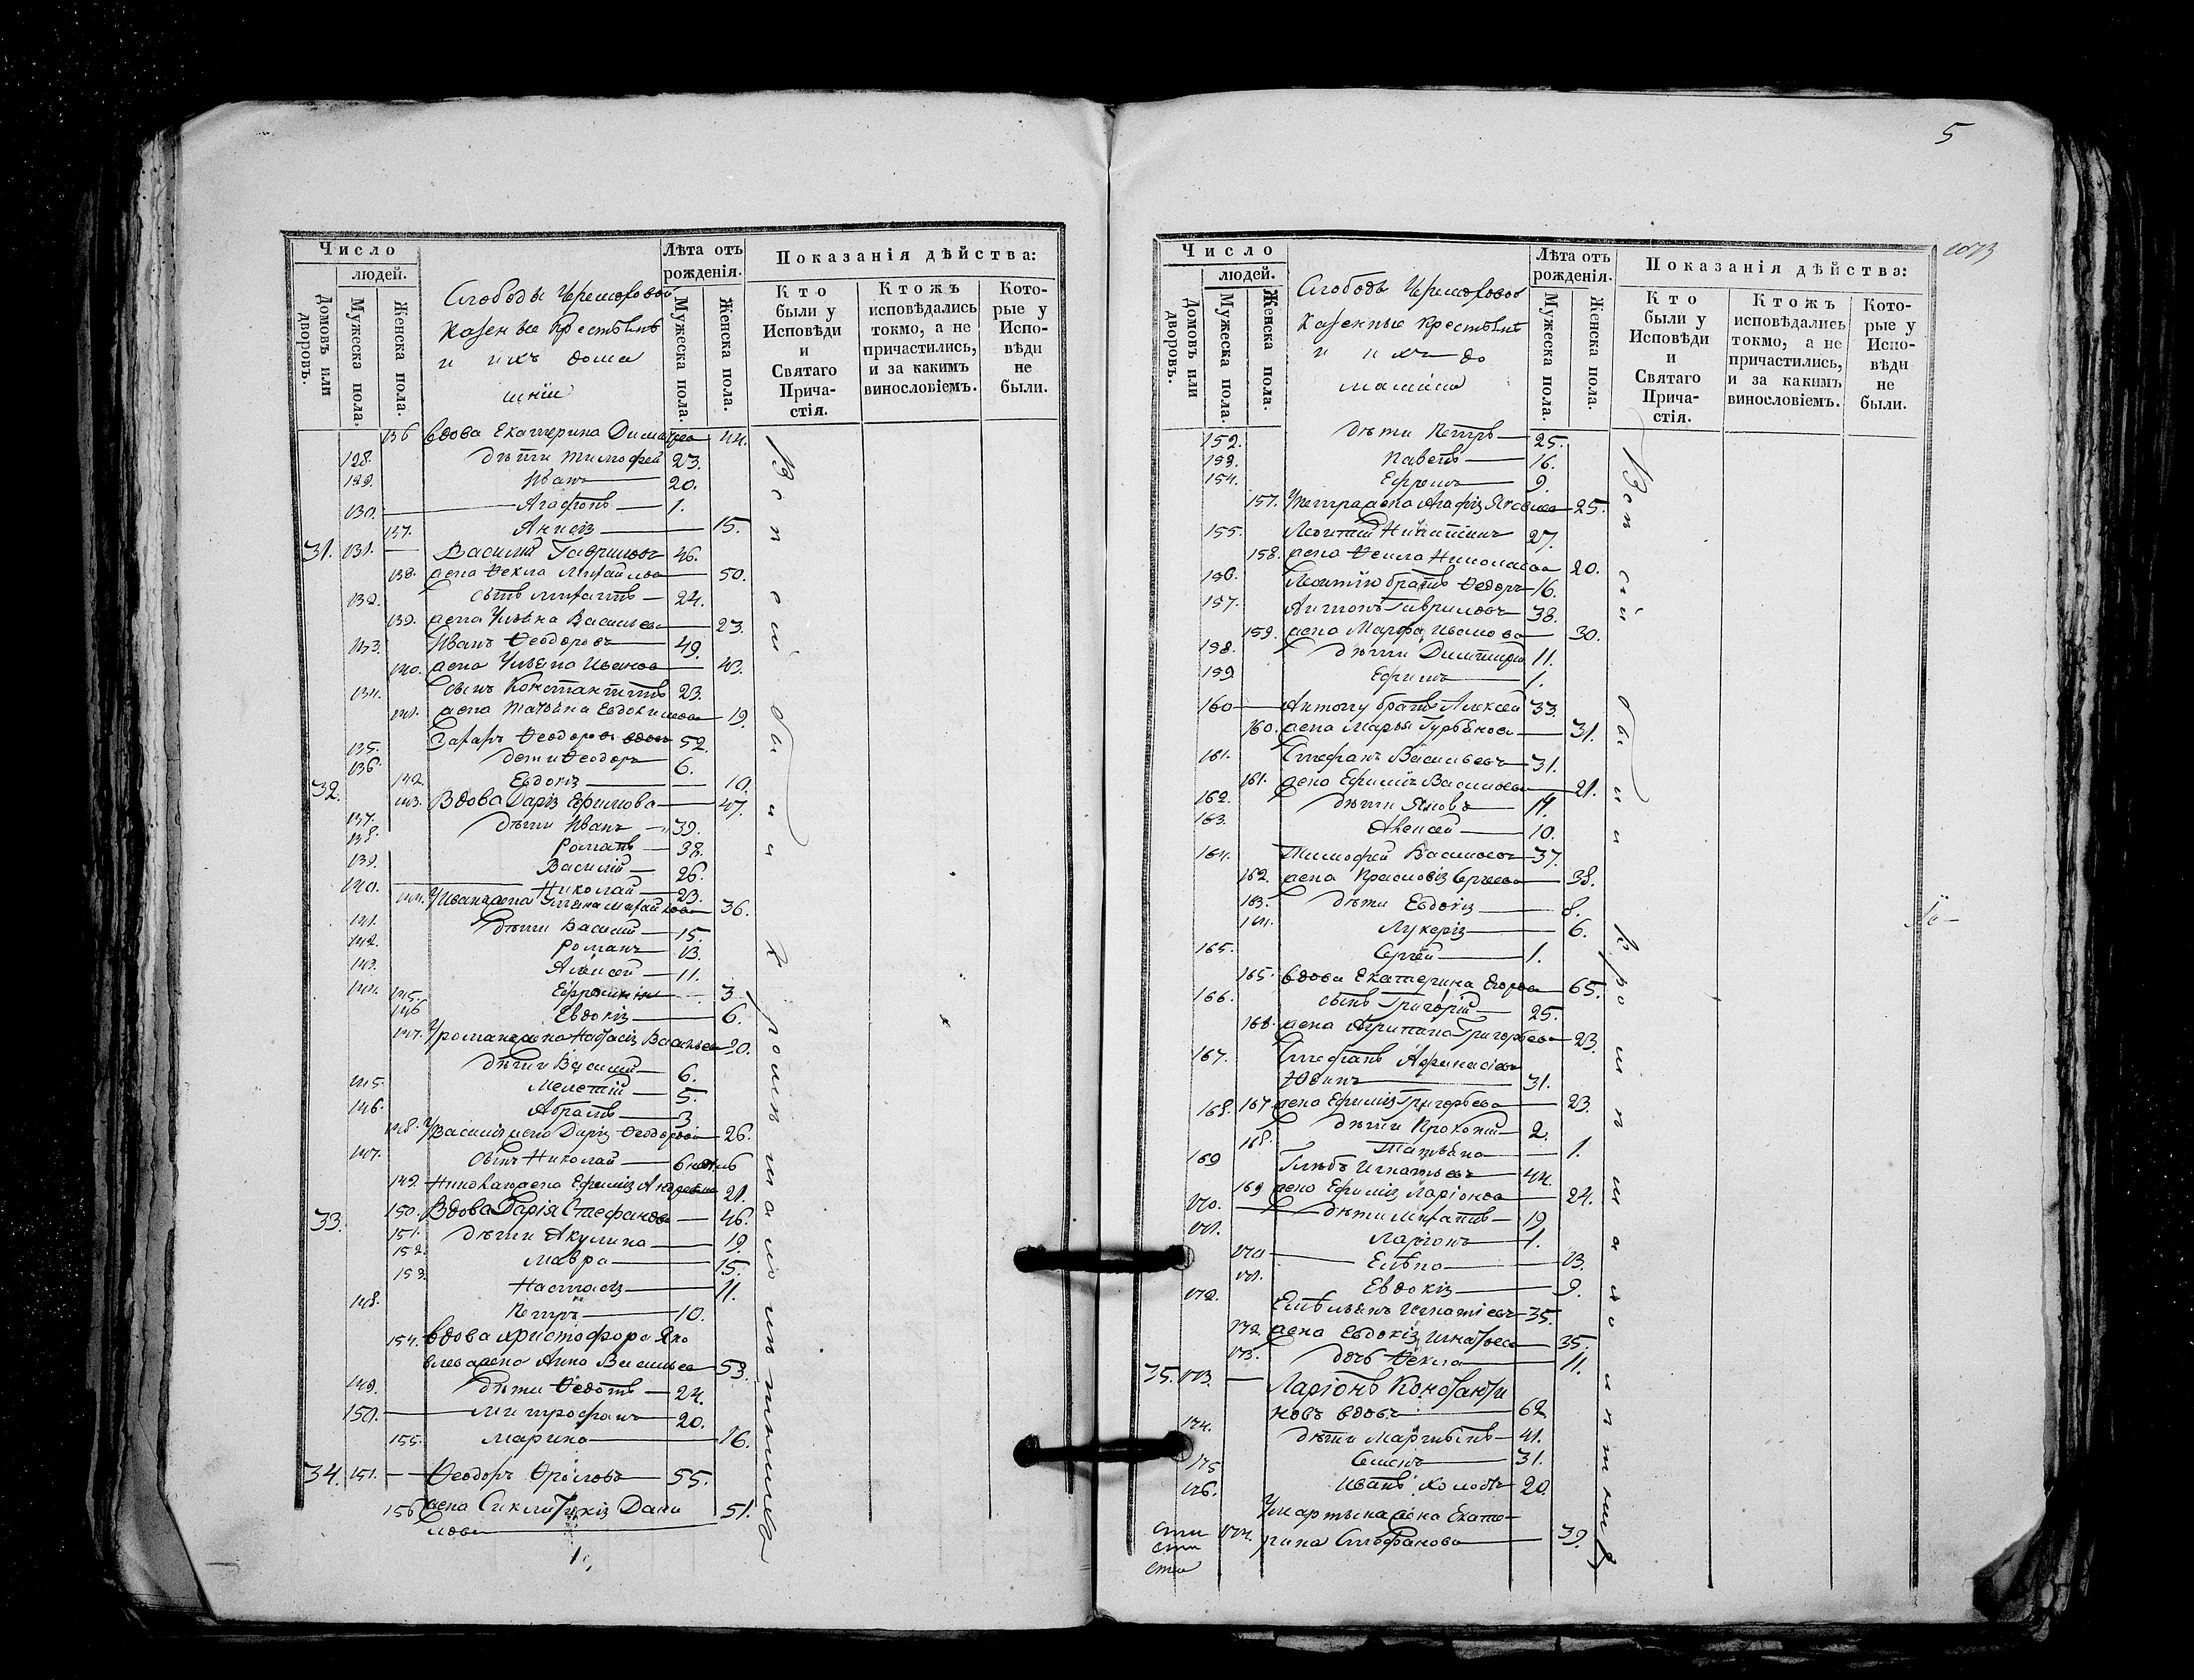 Число
людей.
Домовъ или дворовъ.
Мужеска пола.
Женска пола.
Слободы Черемховой
казенные крестьяне
и ихъ дома
шніи
Лѣта отъ рожденія.
Мужеска пола.
Женска пола.
Показанія дѣйства:
Кто были у Исповѣди и Святаго Причастія.
Ктожъ исповѣдались токмо, а не причастились, и за какимъ винословіемъ.
Которые у Исповѣди не были.
136 вдова Екатерина 44.
128. дѣти Тимофей 23.
129. Иванъ 20.
130. Агафонъ 1.
137. Анисія 15.
31. 131. Василій Гавриловъ 46.
138. жена Ѳекла Михайлова 50.
132. сынъ Михаилъ 24.
139. жена Ульяна Васильева 23.
133. Иванъ Ѳеодоровъ 49.
140. жена Ульяна Иванова 43.
134. сынъ Константинъ 23.
141. жена Татьяна Евдокимова 19.
135. Захаръ Ѳеодоровъ вдовъ 52.
136. дети Ѳеодоръ 6.
142. Евдокія 10.
32. 143. Вдова Дарія Ефимова 47.
137. дѣти Иванъ 39.
138. Романъ 38.
139. Василій 26.
140. Николай 23.
144. У Ивана жена Михайлова 36.
141. дѣти Василій 15.
142. Романъ 13.
143. Алексей 11.
144. 145. 3.
146 Евдокія 6.
147. У Романа жена Васильева 20.
дѣти Василій 6.
145. Мелетій 5.
146. Абрамъ 3
148. У Василія жена Дарія Ѳеодорова 26.
147. сынъ Николай 6
149. Николая жена Ефимія Андреева 21.
33. 150. Вдова Дарія Стефанова 46.
151. дѣти Акулина 19.
152. Мавра 15.
153. Настасія 11.
148. Петръ 10.
154. вдова христофора Яко
влева жена Анна Васильева 53.
149. дѣти Ѳедотъ 24.
150. Митрофанъ 20.
155. Марина 16.
34. 151. Ѳеодоръ Фроловъ 55.
156 жена Дани 51.
лова
Всѣ сіи были кромѣ малолѣтныхъ
5
Число
людей.
Домовъ или дворовъ.
Мужеска пола.
Женска пола.
Слободы Черемховой
казенные крестьяне
и ихъ до
машніи
Лѣта отъ рожденія.
Мужеска пола.
Женска пола.
Показанія дѣйства:
Кто были у Исповѣди и Святаго Причастія.
Ктожъ исповѣдались токмо, а не причастились, и за какимъ винословіемъ.
Которые у Исповѣди не были.
152. дѣти Петръ 25.
153. Павелъ 16.
154. Ефремъ 9.
157. У Петра жена Агафія Яковлева 25.
155. Леонтій 27.
158. жена Ѳекла Николаева 20.
156. Леонтія братъ Ѳедоръ 16.
157. Антонъ Гавриловъ 38.
159. жена Марфа Иванова 30.
158. дѣти Димитрій 11.
159. Ефимъ 1.
160 Антону братъ Алексей 33.
160. жена Марья Гурьянова 31.
161. Стефанъ Васильевъ 31.
161. жена Ефимія Васильева 21.
162. дѣти Яковъ 14.
163. Алексей 10.
164. Тимофей Васильевъ 37.
162. жена Сергеева 38.
163. дѣти Евдокія 8.
164. Лукерія 6.
165. Сергей 1.
165. вдова Екатерина Егорова 65.
166. сынъ Григорій 25.
166. жена Агрипина Григорьева 23.
167. Стефанъ Афанасіевъ
Юдинъ 31.
167 жена Ефимія Григорьева 23.
168. дѣти Прокопій 2.
168. Татьяна 1.
169 Глебъ Игнатьевъ 44.
169 жена Ефимія Ларіонова 24.
170. дѣти Михаилъ 19
171. Ларіонъ 1.
170 Елена 13.
171. Евдокія 9.
172. Емельянъ Игнатіевъ 35.
172. жена Евдокія Игнатьева 35.
173. дочь Ѳекла 11.
35. 173. Ларіонъ Константи
новъ вдовъ 62
174. дѣти Мартынъ 41.
175 Семенъ 31.
176. Иванъ холостъ 20.
У Мартына жена Екате
174. рина Стефанова 39.
Всѣ сіи были кромѣ малолѣтныхъ